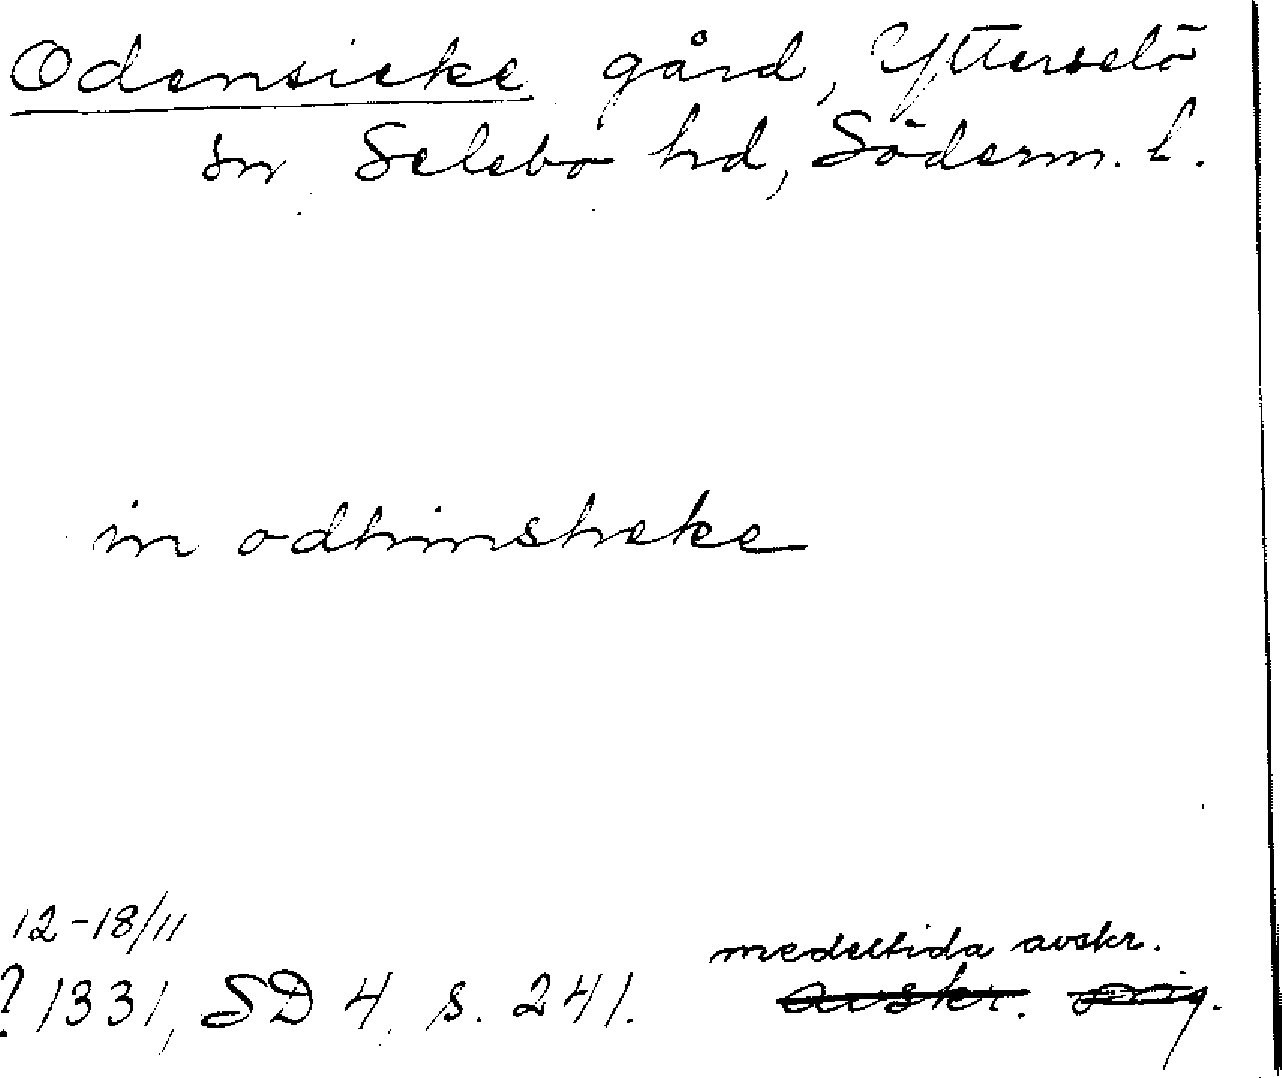 Odensicke gård, Ytterselö
sn Selebo hd, Söderm. l.
in odhinsheke
12-18/11
? 1331, SD 4 s. 241.
medeltida avskr.
avskr. orig.